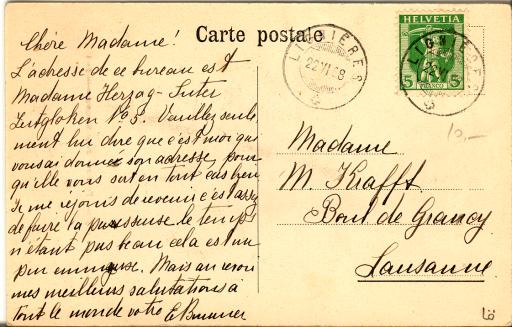 Carte postale
Chère Madame!
L'adresse de ce bureau est
Madame Herzog-Suter
Zeitglocken No 5. Veuillez seule
ment lui dire que c'est moi qui
vous ai donné son adresse, pour
qu'elle vous sert en tout cas bien
Je me réjouis de revenir c'est assez
de faire la paresseuse le temps
n'étant pas beau cela est un
peu ennuyeuse. Mais au revoir
mes meilleurs salutations à
tout le monde votre E Brunner
LIGNIÈRES
22 VI 08
HELVETIA
5 5
FRANCO
LIGNIÈRES
10,—
Madame
M. Krafft
Bout de Grancy
Lausanne